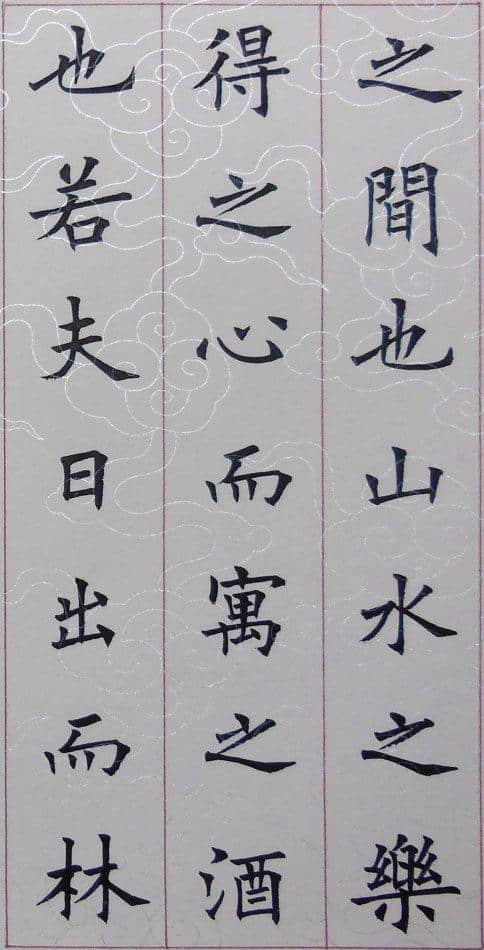 之間也山水之樂
得之心而寓之酒
也若夫日出而林